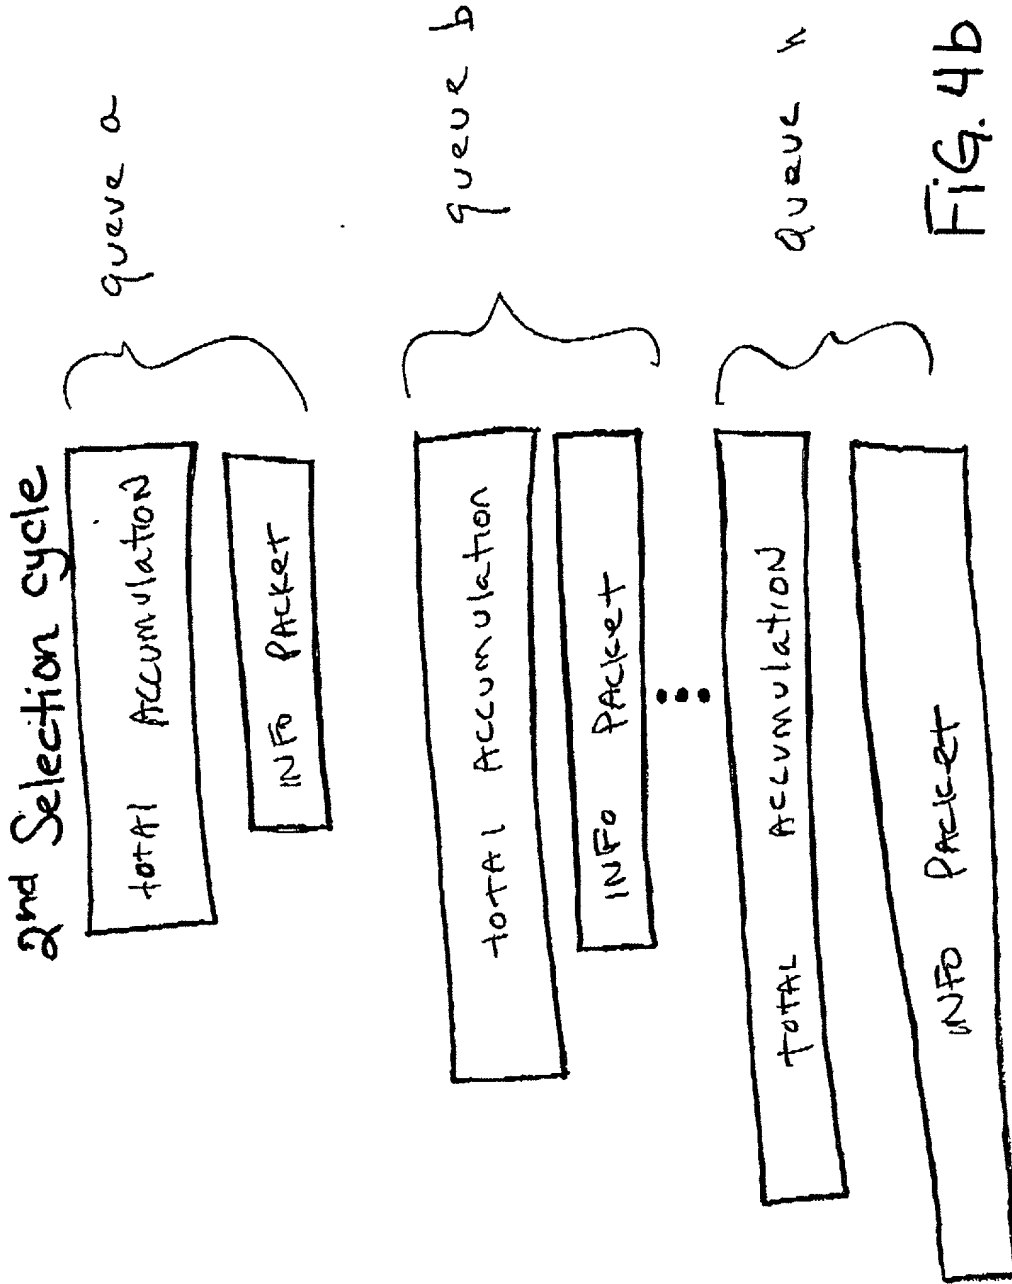 2nd Selection cycle
totAl AccumulatioN
INFo PAcket
queue a
totAl Accumulation
INFo PAcket
queue b
totAL AccumulatioN
INFo PAcket
Queue n
FiG. 4b